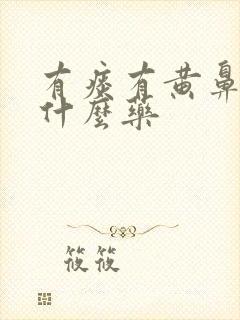 有痰有黄鼻
什麽药
筱筱